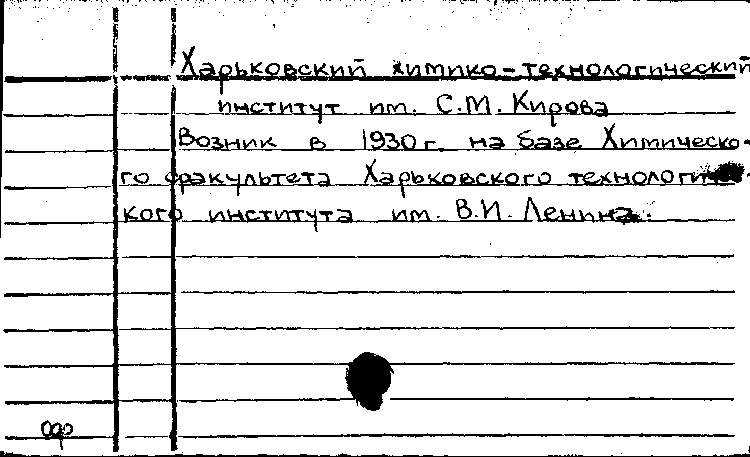 Харьковский химико-технологический
институт им. С.М. Кирова
Возник в 1930 г. на базе Химическо-
го факультета Харьковского технологичес-
кого института им. В.И. Ленина.